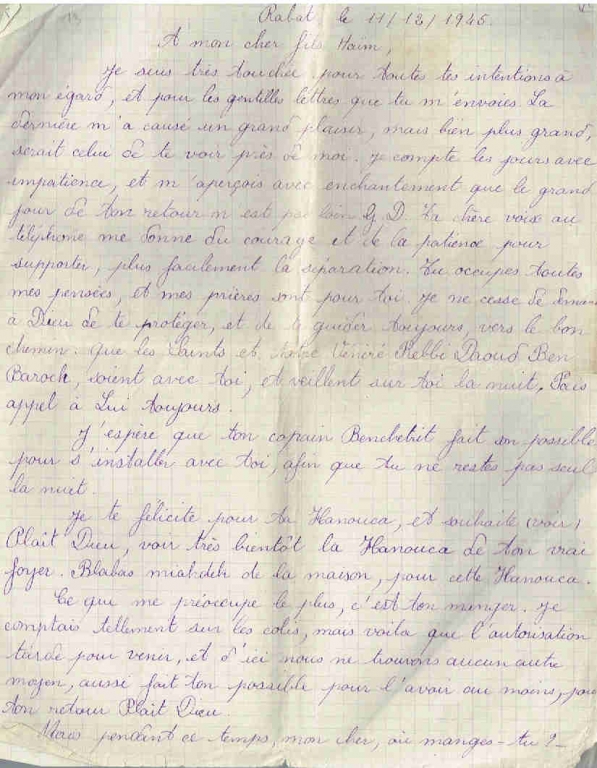 Rabat, le 11/12/1945.
A mon cher fils Haïm,
Je suis très touchée pour toutes tes intentions à
mon égard, et pour les gentilles lettres que tu m'envoies. La
dernière m'a causé un grand plaisir, mais bien plus grand,
serait celui de te voir près de moi. Je compte les jours avec
impatience, et m'aperçois avec enchantement que le grand
jour de ton retour n'est pas loin G. D. Ta chère voix au
téléphone me donne du courage et de la patience pour
supporter, plus facilement la séparation. Tu occupes toutes
mes pensées, et mes prières sont pour toi. Je ne cesse de
à Dieu de te protéger, et de te guider toujours, vers le bon
chemin. Que les Saints et notre Vénéré Rebbi Daoud Ben
Baroch, soient avec toi, et veillent sur toi la nuit. Fais
appel à Lui toujours.
J'espère que ton copain Benchetrit fait son possible
pour s'installer avec toi, afin que tu ne restes pas seul
la nuit.
Je te félicite pour ta Hanouca, et souhaite (voir)
Plaît Dieu, voir très bientôt la Hanouca de ton vrai
foyer. Blabas de la maison, pour cette Hanouca.
Ce que me préoccupe le plus, c'est ton manger. Je
comptais tellement sur les colis, mais voila que l'autorisation
tarde pour venir, et d'ici nous ne trouvons aucun autre
moyen, aussi fait ton possible pour l'avoir au moins, pour
ton retour Plaît Dieu.
Mais pendant ce temps, mon cher, où manges-tu ?_